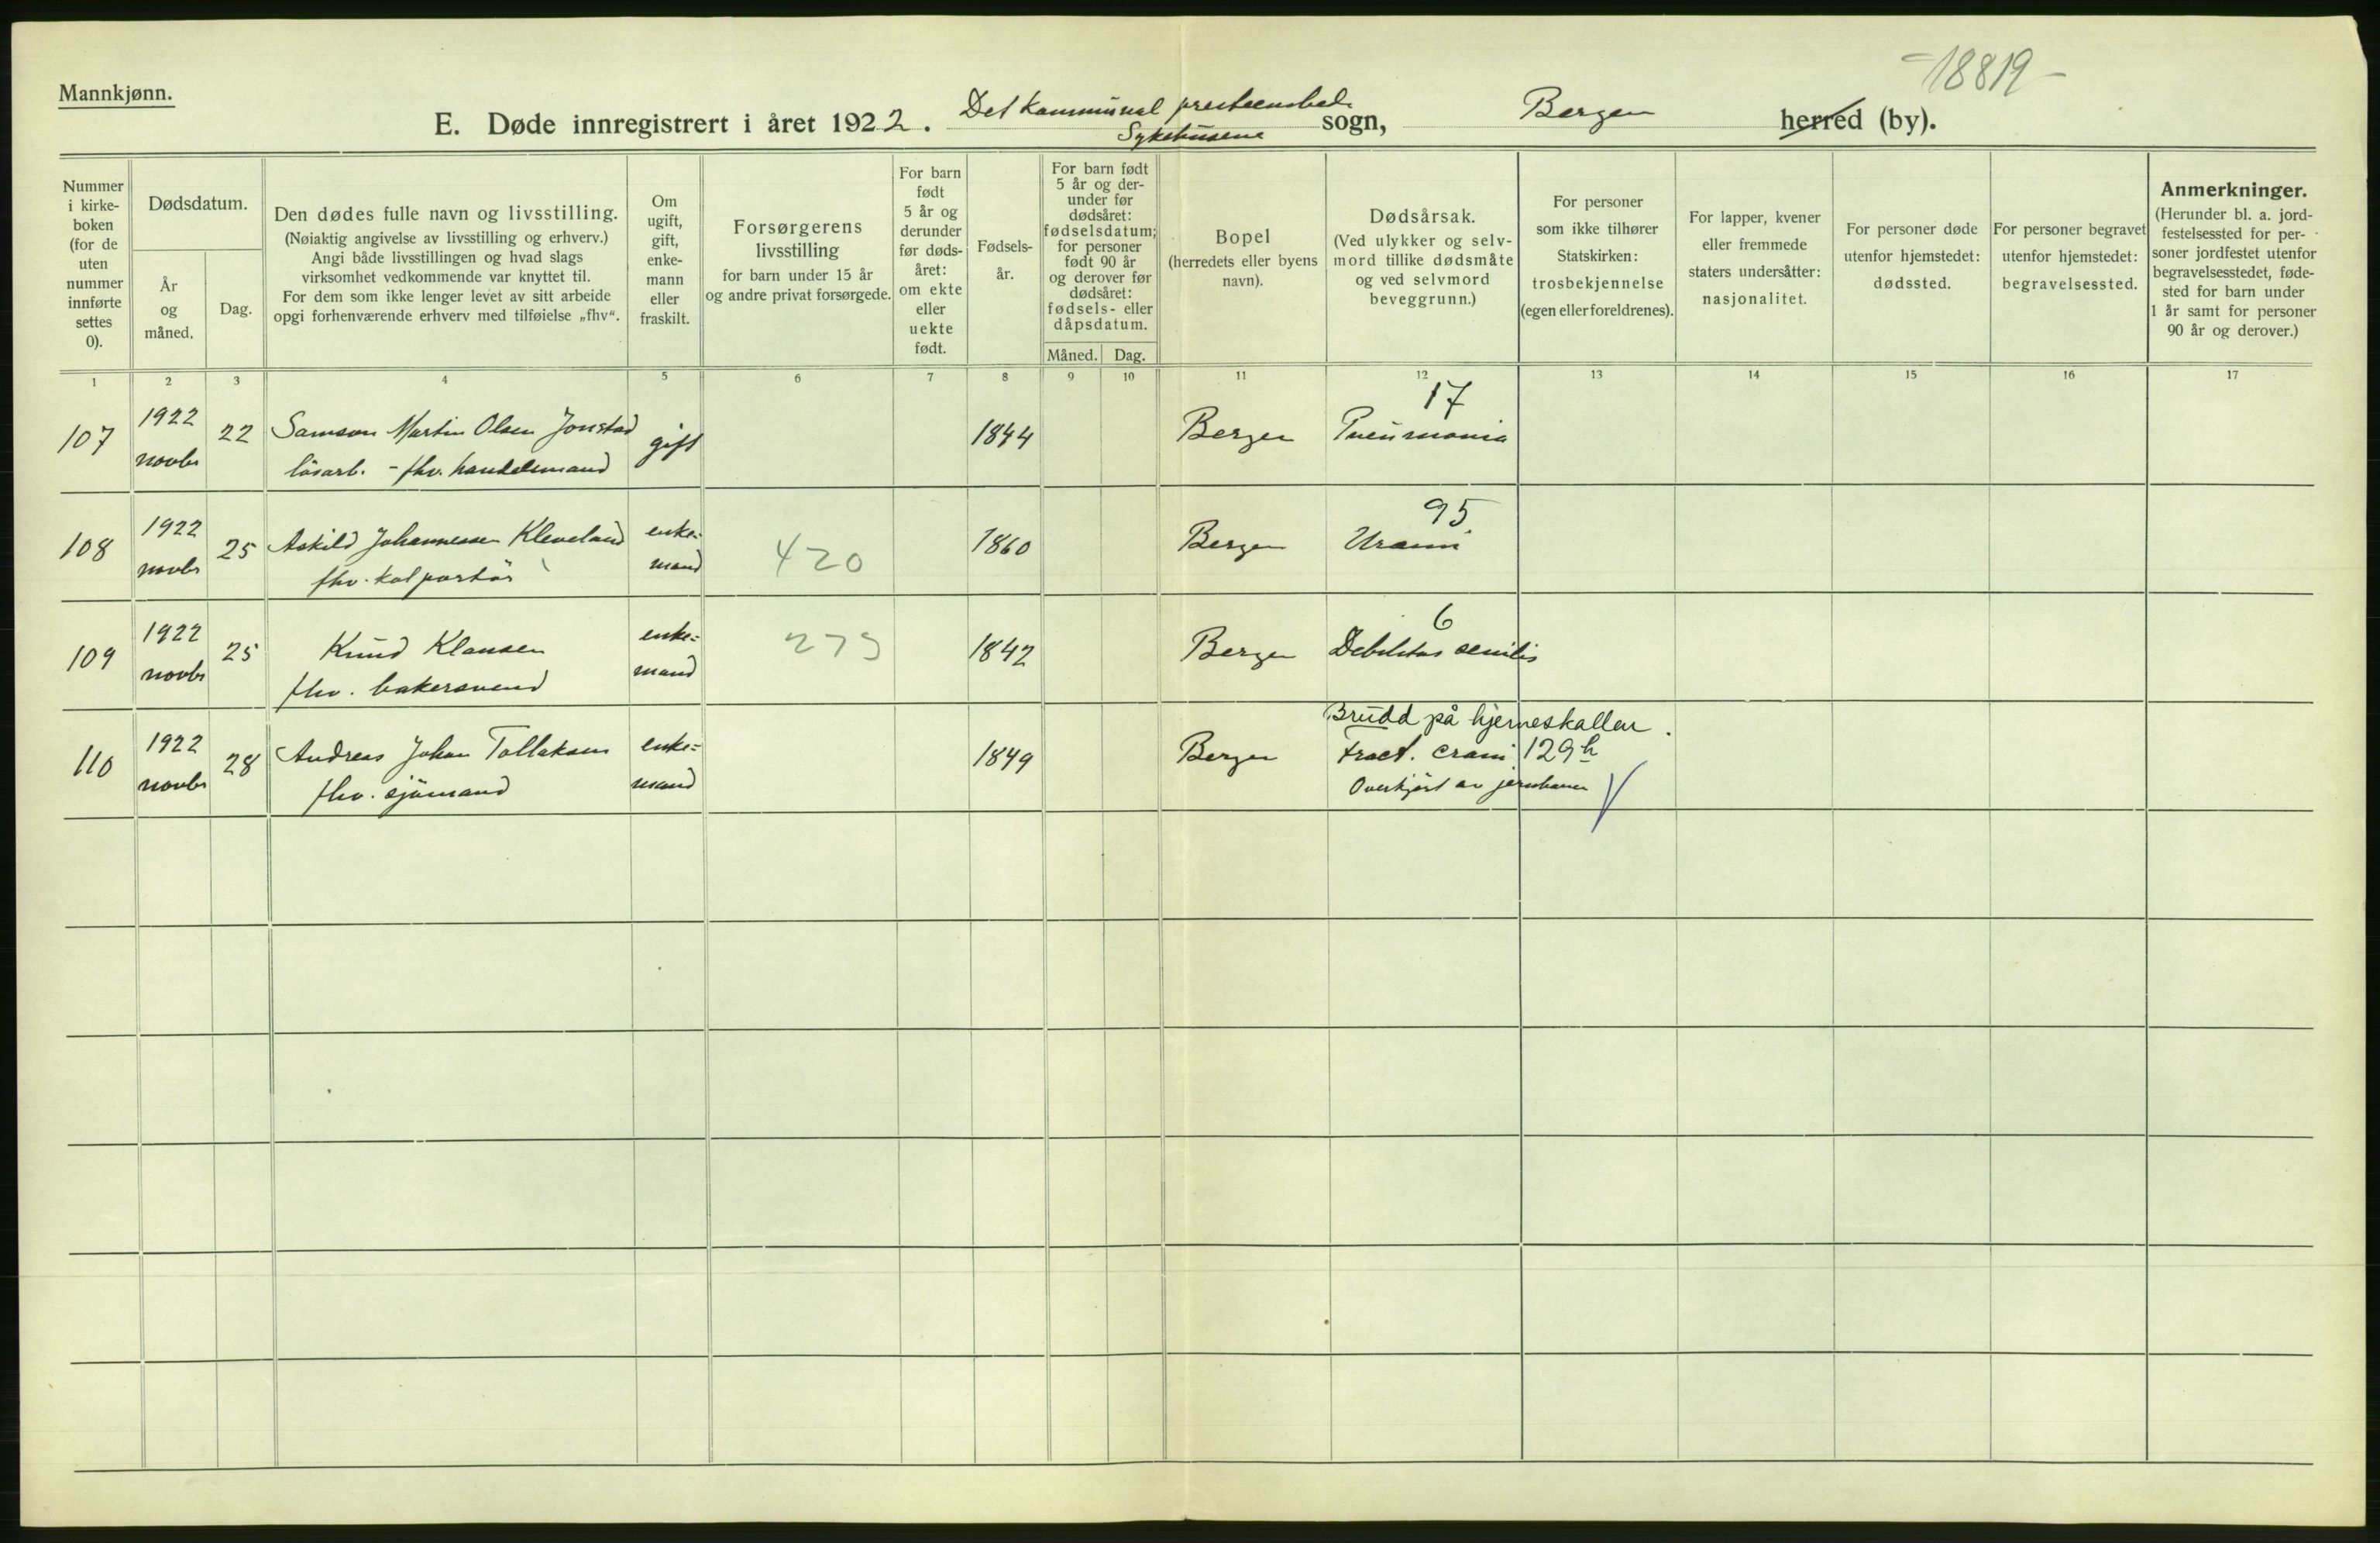 -18819-
Mannkjønn.
E. Døde innregistrert i året 1922. Det kommunal presteembede Sykehusene sogn, Bergen herred (by).
Nummer i kirke- boken (for de uten nummer innførte settes 0).
Dødsdatum.
År og måned.
Dag.
Den dødes fulle navn og livsstilling.
(Nøiaktig angivelse av livsstilling og erhverv.)
Angi både livsstillingen og hvad slags
virksomhet vedkommende var knyttet til.
For dem som ikke lenger levet av sitt arbeide
opgi forhenværende erhverv med tilføielse „fhv“.
Om ugift, gift, enke- mann eller fraskilt.
Forsørgerens livsstilling
for barn under 15 år
og andre privat forsørgede.
For barn født 5 år og derunder før døds- året: om ekte eller uekte født.
Fødsels- år.
For barn født 5 år og der- under før dødsåret: fødselsdatum; for personer født 90 år og derover før dødsåret: fødsels- eller dåpsdatum.
Måned. Dag.
Bopel
(herredets eller byens navn).
Dødsårsak.
(Ved ulykker og selv- mord tillike dødsmåte og ved selvmord beveggrunn.)
For personer som ikke tilhører Statskirken: trosbekjennelse (egen eller foreldrenes).
For lapper, kvener eller fremmede staters undersåtter: nasjonalitet.
For personer døde utenfor hjemstedet: dødssted.
For personer begravet utenfor hjemstedet: begravelsessted.
Anmerkninger.
(Herunder bl. a. jord- festelsessted for per- soner jordfestet utenfor begravelsesstedet, føde- sted for barn under 1 år samt for personer 90 år og derover.)
1 2 3 4 5 6 7 8 9 10 11 12 13 14 15 16 17
107 1922 novbr 22 Samson Martin Olsen Jonstad gift 1844 Bergen 17 Pneumonia
løsarb. - fhv. handelsmand
108 1922 novbr 25 Askild Johannessen Kleveland enke- mand 420 1860 Bergen 95 Urami
fhv. kolportør
109 1922 novbr 25 Knud Klausen enke= mand 273 1842 Bergen 6 Debilitas senilis
fhv. bakersvend
110 1922 novbr 28 Andreas Johan Tollaksen enke= mand 1849 Bergen Brudd på hjerneskallen.
fhv. sjømand
Fract. crani 129h
Overkjørt av jernbanen